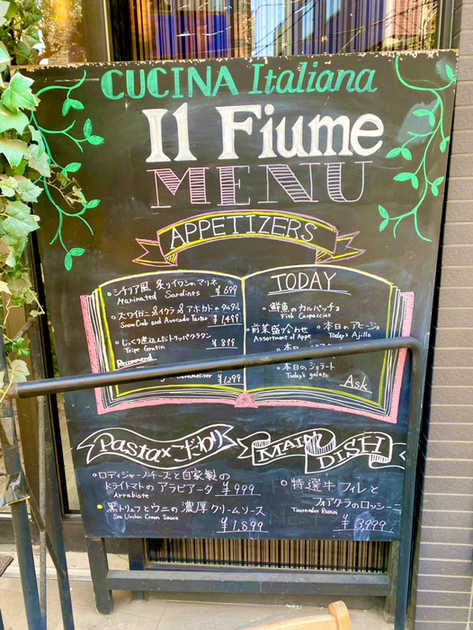 CUCINA Italiana
Il Fiume
MENU
APPETIZERS
シチリア風 炙りイワシのマリネ
Marinated Sardines ¥699
ズワイガニ&イクラ&アボカドのタルタル
Snow Crab and Avocado Tartar ¥1499
じっくり煮込んだトリッパグラタン
Tripe Gratin ¥899
Recommend
¥1299
TODAY
鮮魚のカルパッチョ
Fish Carpaccio
前菜盛り合わせ
Assortment of Appt.
本日のアヒージョ
Today's Ajillo
本日のジェラート
Today's gelato
Ask
Pasta×こだわり
ロディジャーノチーズと自家製の
ドライトマトのアラビアータ ¥999
Arrabiata
黒トリュフとウニの濃厚クリームソース
Sea Urchin Cream Sauce ¥1,899
MAIN DISH
特選牛フィレと
フォアグラのロッシーニ
Tournedos Rossini
¥3999